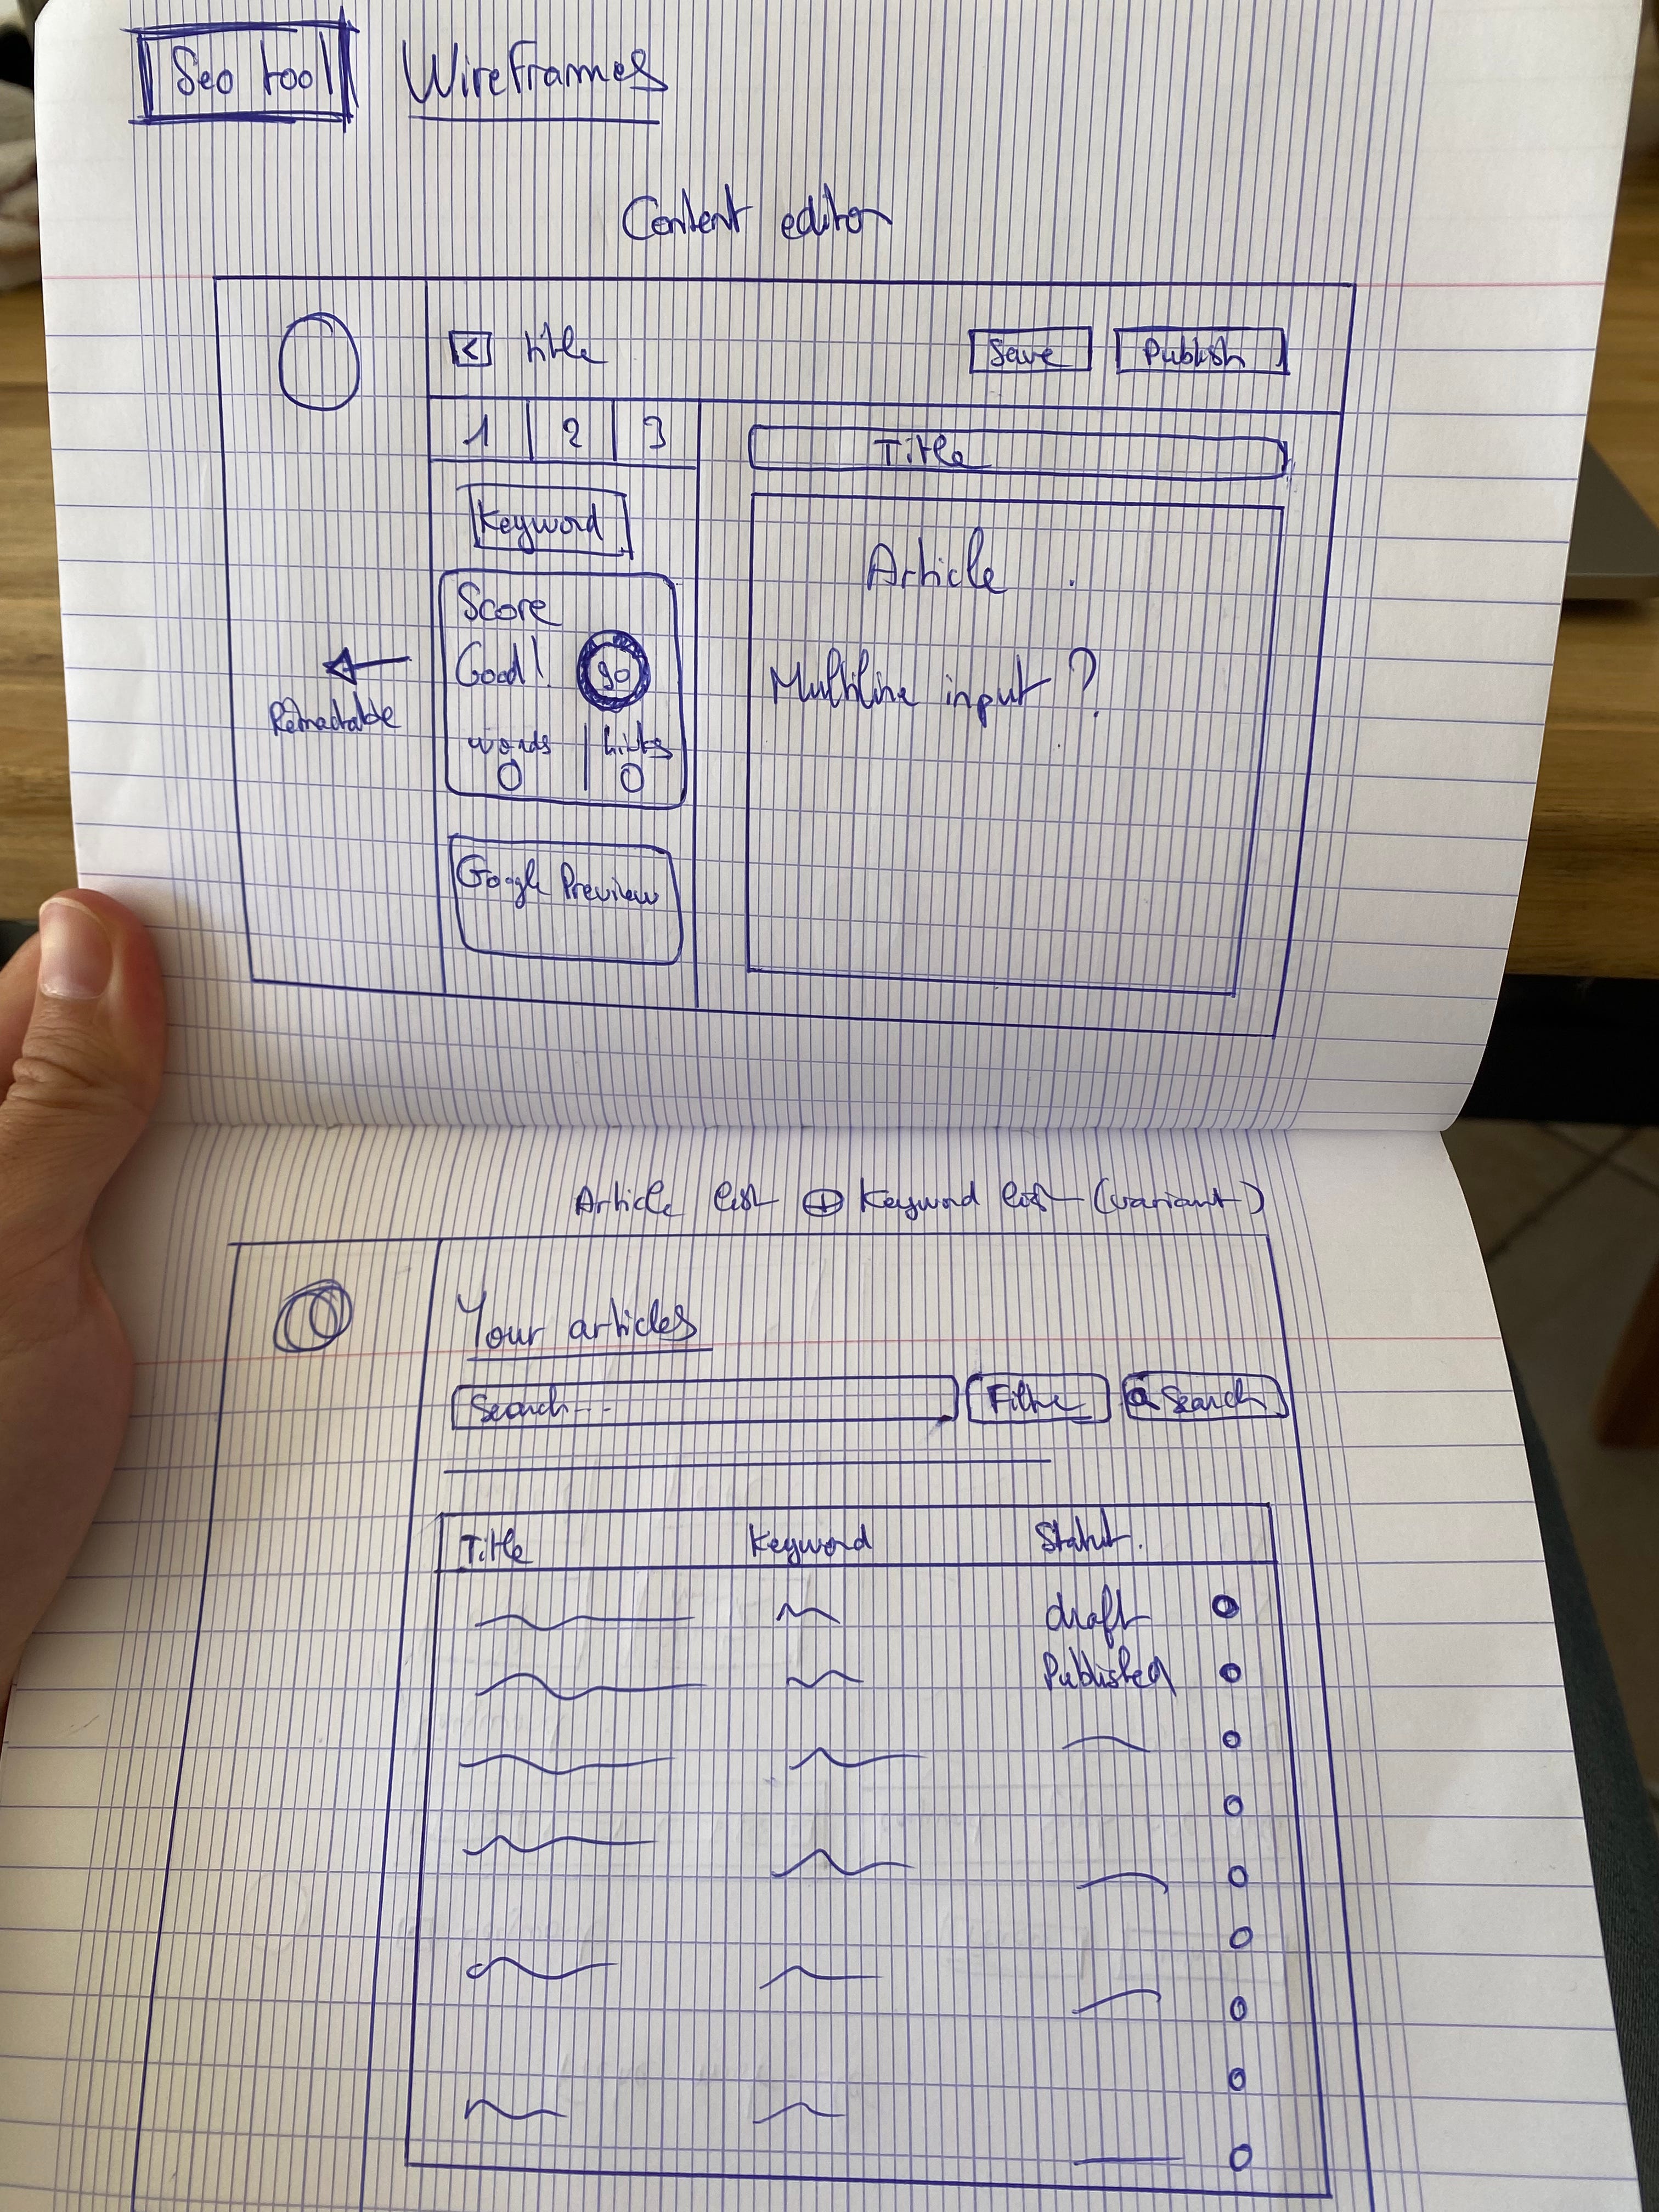 Seo tool Wireframes
Content editor
< title Save Publish
1 2 3
Title
Keyword
Article
Score
Good! 90
Multiline input ?
Retractable
words | links
0 | 0
Google Preview
Article list ⊕ Keyword list (variant)
Your articles
Search... Filtre Search
Title Keyword Statut.
draft
Published